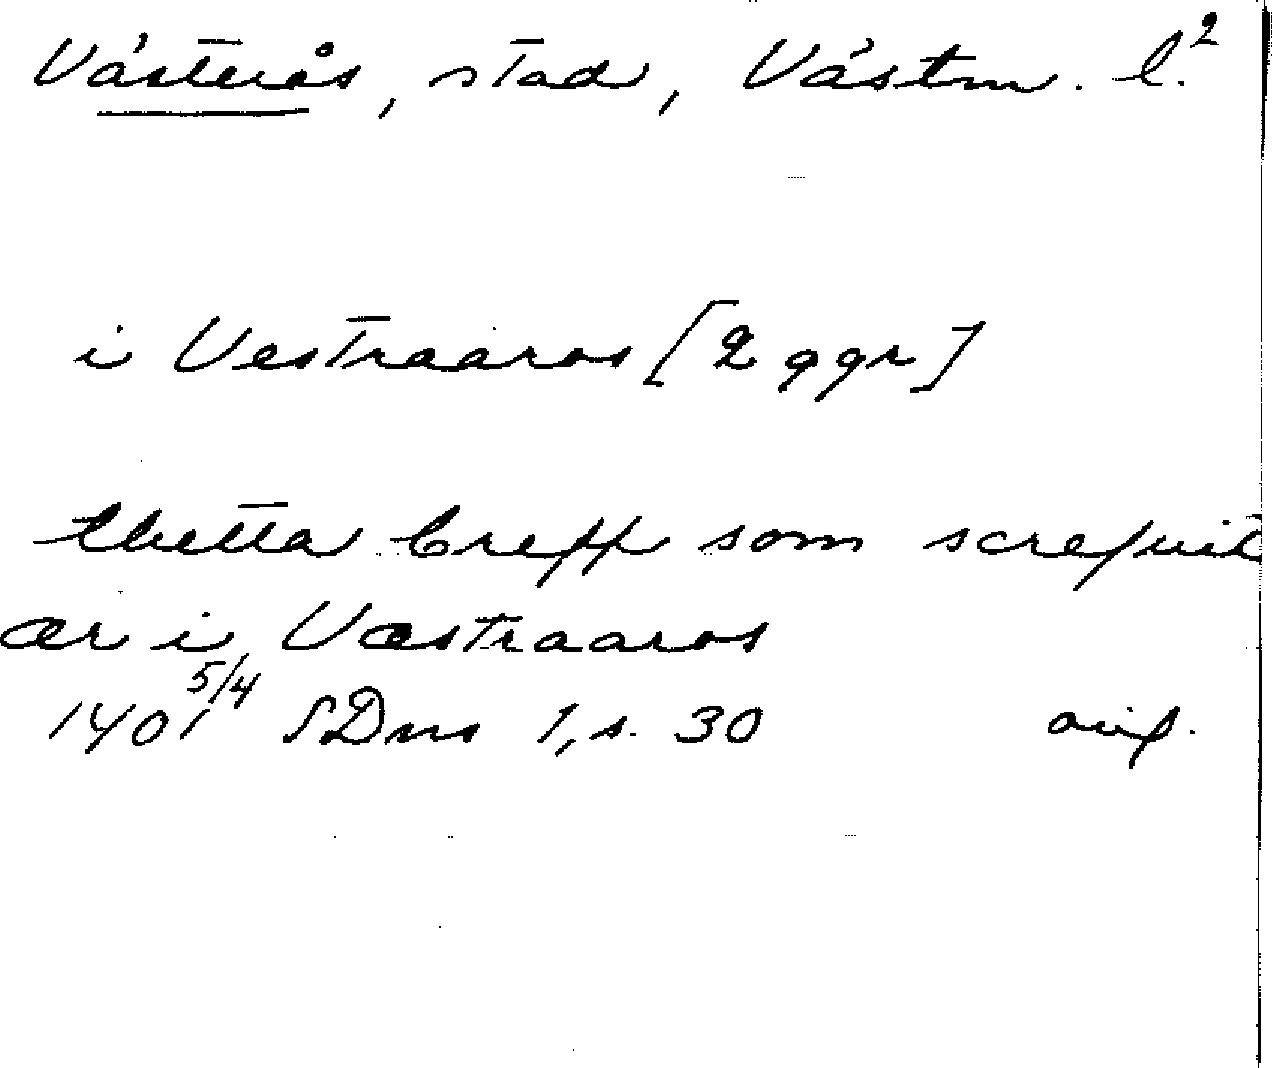 Västerås, stad, Västm. l.²
i Vestraaros [2 ggr]
thetta breff som screfuit
ær i Væstraaros
1401 5/4 SDns 1, s. 30 avf.